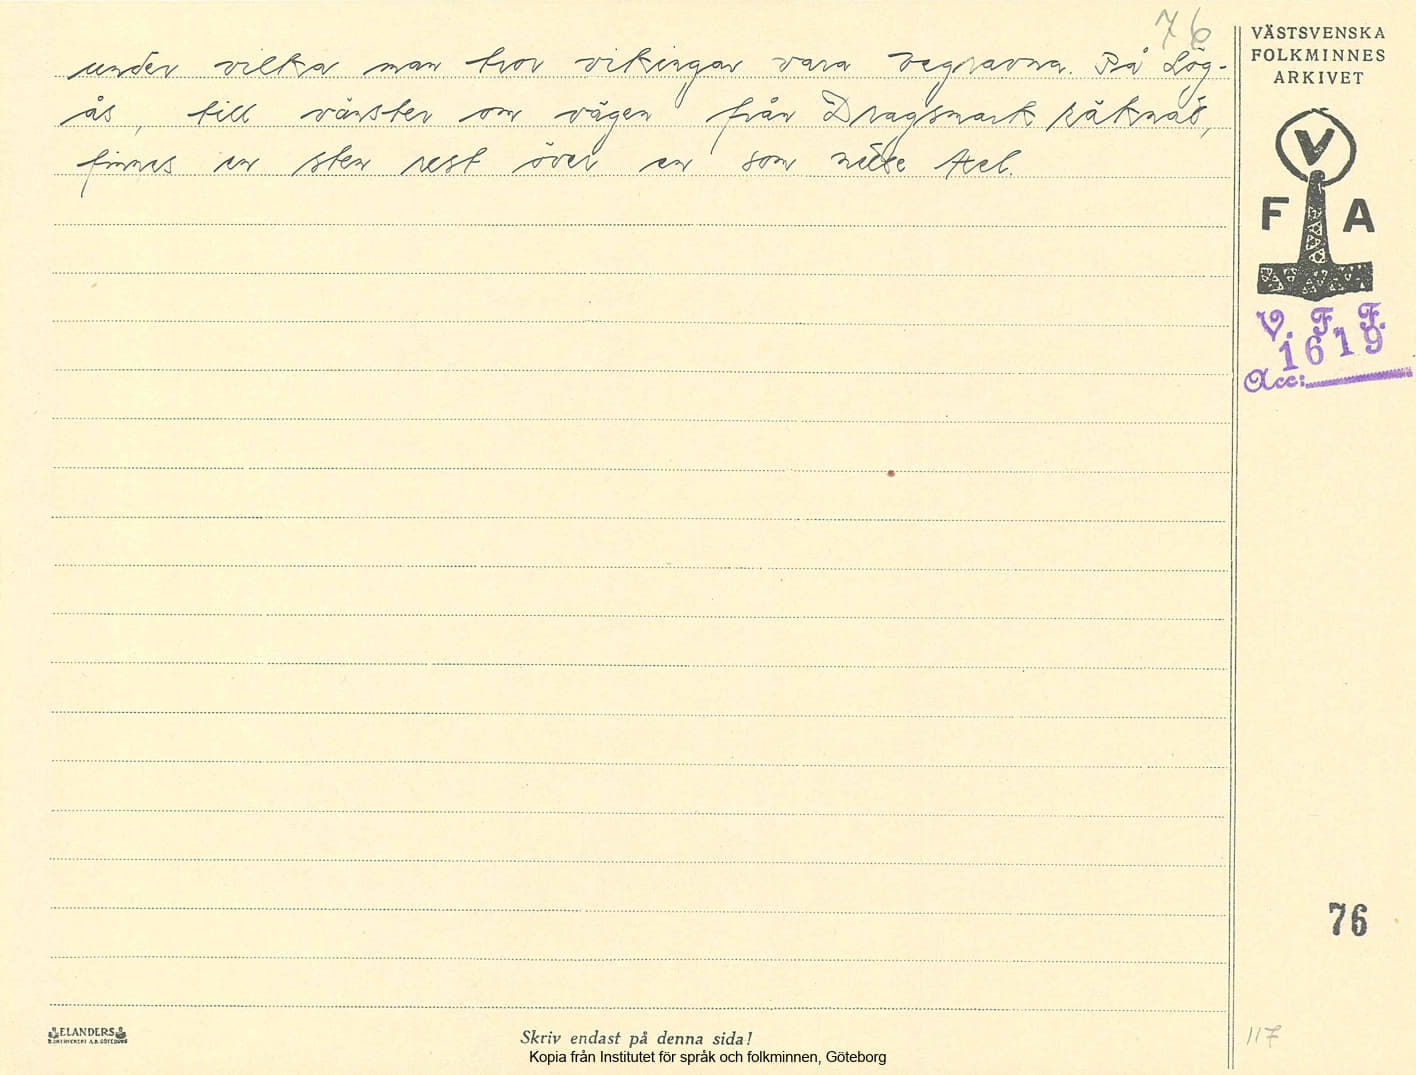 76
under vilka man tror vikingar vara begravna. På Lög-
ås, till vänster om vägen från Dragsmark
finnes en sten rest över en som hette Axel.
VÄSTSVENSKA
FOLKMINNES
ARKIVET
V
F A
V. F. F.
1619
Acc:
76
117
ELANDERS
Skriv endast på denna sida!
Kopia från Institutet för språk och folkminnen, Göteborg